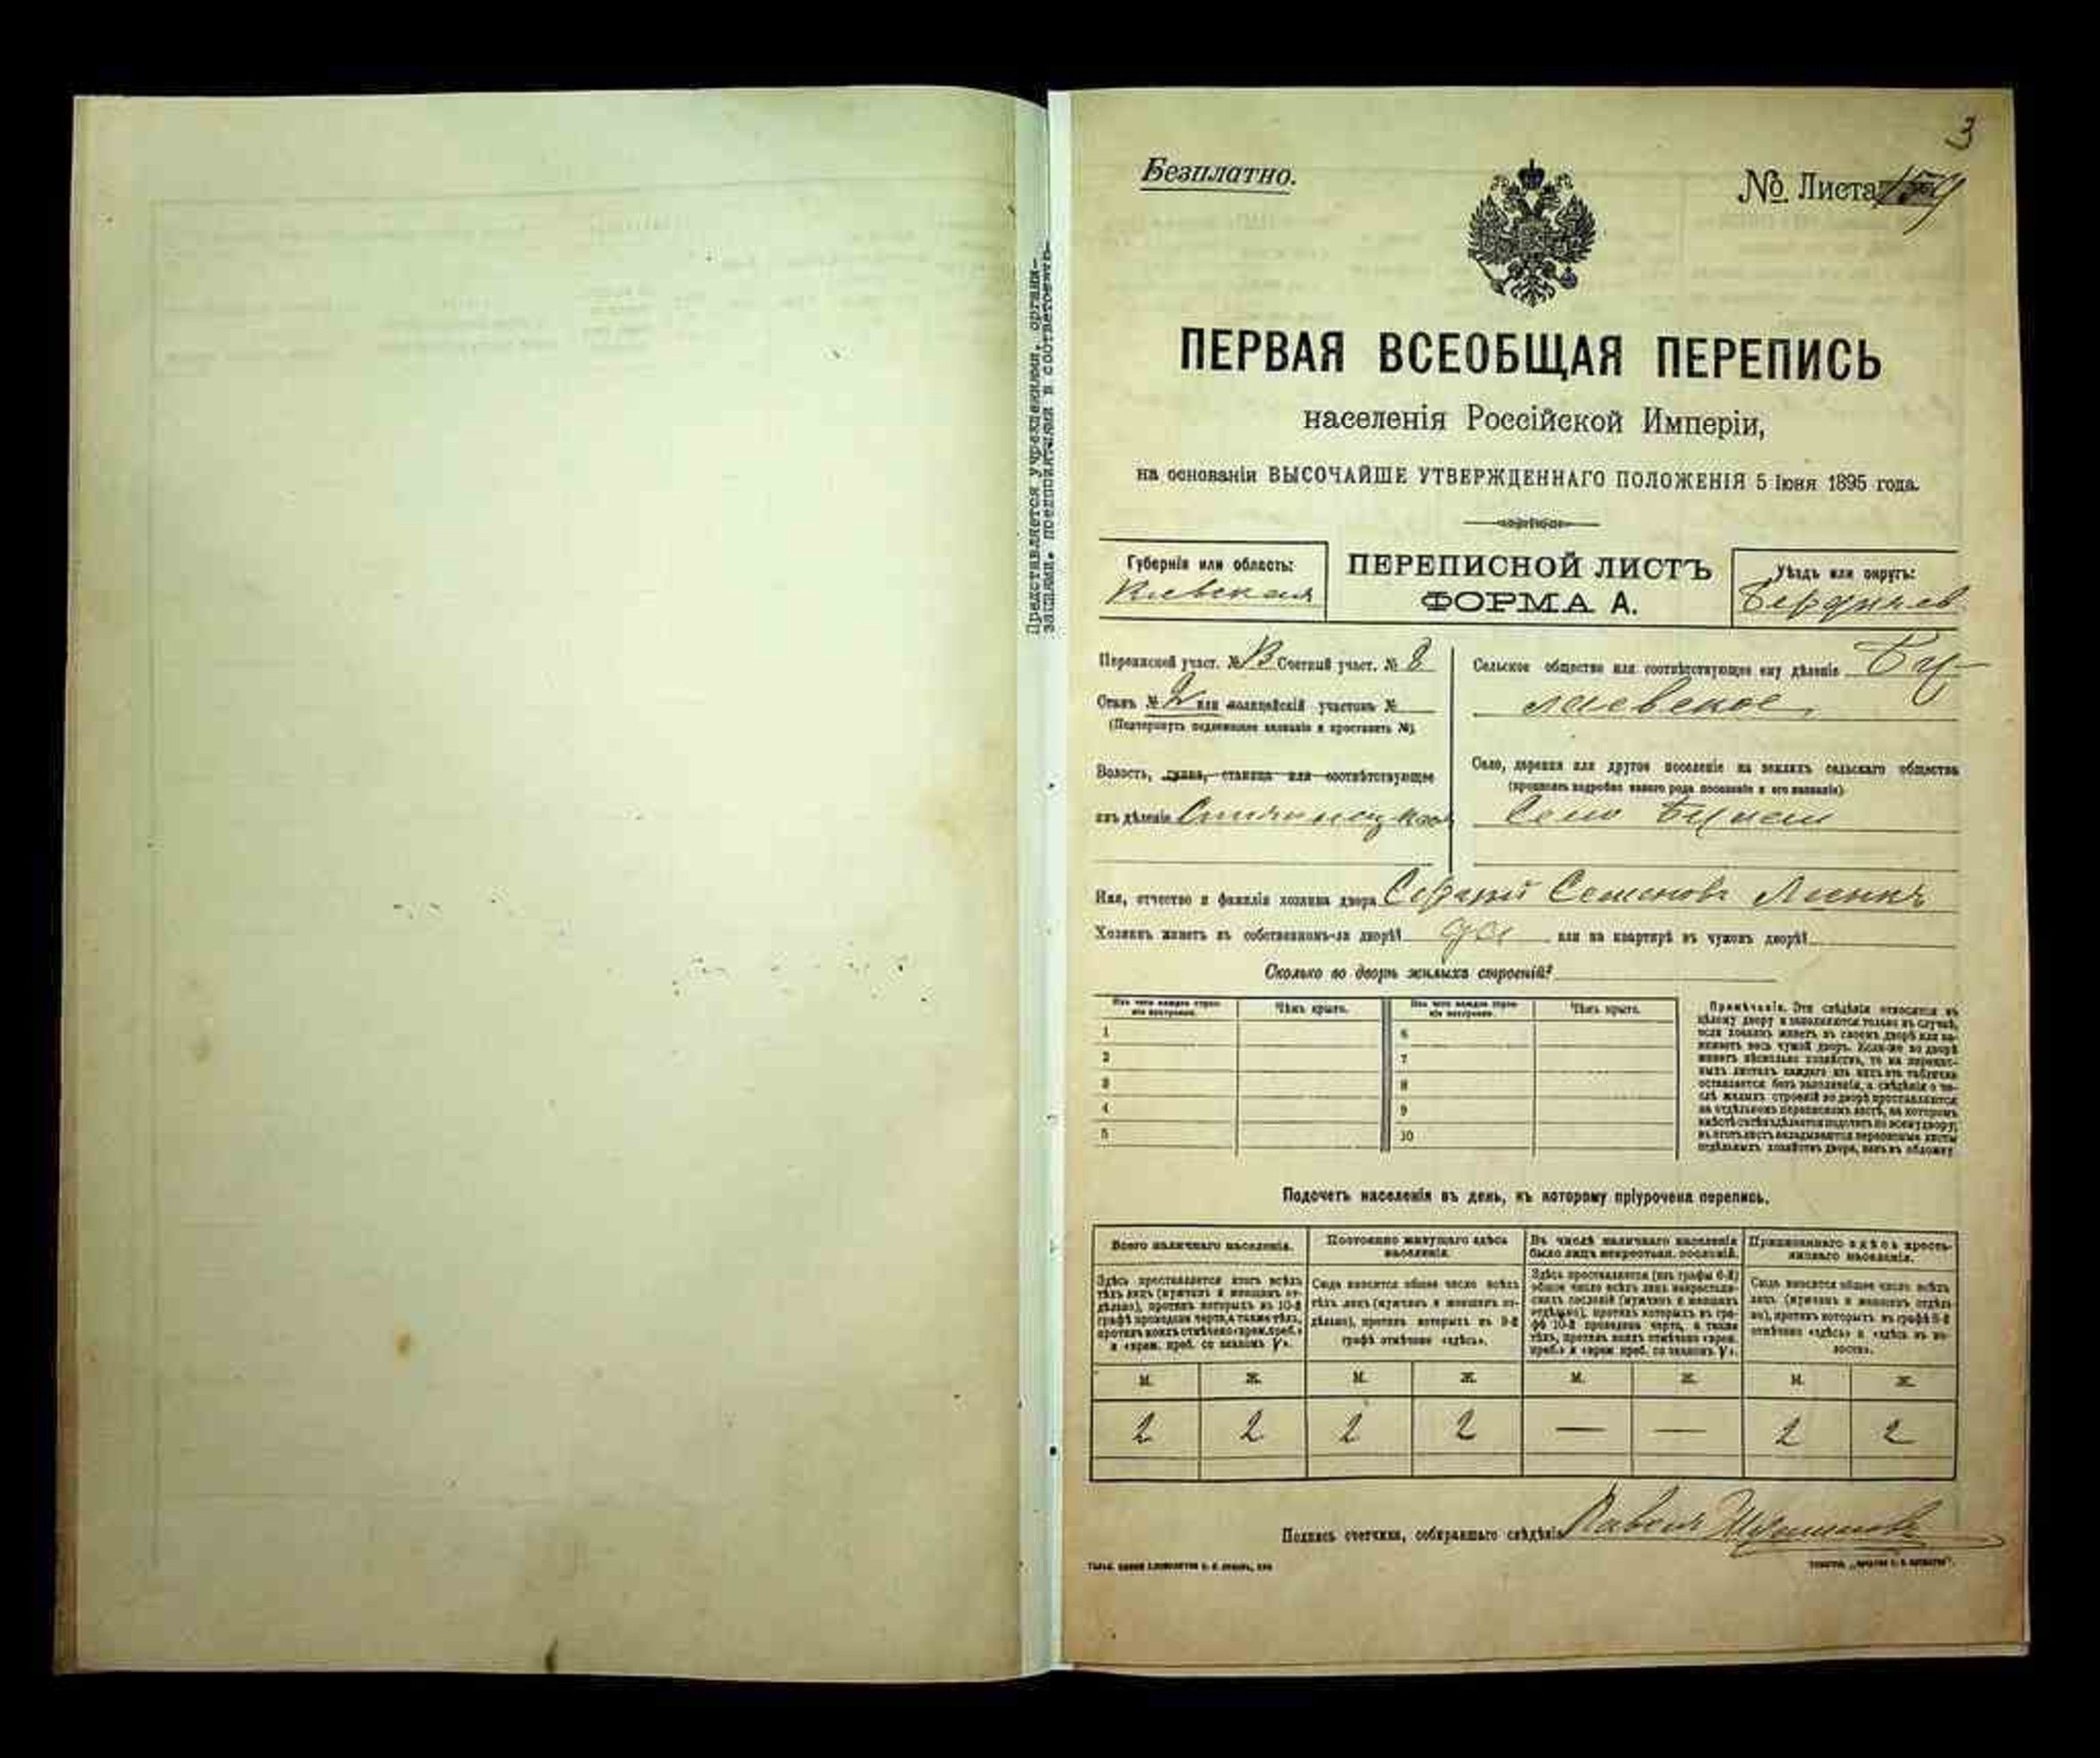 3
Безплатно.
№ Листа 159
ПЕРВАЯ ВСЕОБЩАЯ ПЕРЕПИСЬ
населенія Россійской Имперіи,
на основаніи ВЫСОЧАЙШЕ УТВЕРЖДЕННАГО ПОЛОЖЕНІЯ 5 Іюня 1895 года.
Губернія или область:
Кіевская
ПЕРЕПИСНОЙ ЛИСТЪ
ФОРМА А.
Уѣздъ или округъ:
Бердичев
Переписной участ. № Счетный участ. № 8
Станъ № 2 или полицейскій участокъ №
(Подчеркнуть подлежащее названіе и проставить №).
Волость, гмина, станица или соотвѣтствующее
имъ дѣленіе
Сельское общество или соотвѣтствующее ему дѣленіе
Село, деревня или другое поселеніе на земляхъ сельскаго общества
(прописать подробно какого рода поселеніе и его названіе)
Село
Имя, отчество и фамилія хозяина двора Семеновъ
Хозяинъ живетъ въ собственномъ-ли дворѣ? да или на квартирѣ въ чужомъ дворѣ?
Сколько во дворѣ жилыхъ строеній?
Изъ чего каждое строе-
ніе построено.
Чѣмъ крыто.
Изъ чего каждое строе-
ніе построено.
Чѣмъ крыто.
1
2
3
4
5
6
7
8
9
10
Примѣчаніе. Эти свѣдѣнія относятся къ
цѣлому двору и заполняются только въ случаѣ,
если хозяинъ живетъ въ своемъ дворѣ или за-
нимаетъ весь чужой дворъ. Если-же во дворѣ
живетъ нѣсколько хозяйствъ, то на перепис-
ныхъ листахъ каждаго изъ нихъ эта табличка
оставляется безъ заполненія, а свѣдѣнія о чи-
слѣ жилыхъ строеній во дворѣ проставляются
на отдѣльномъ переписномъ листѣ, на которомъ
вмѣстѣ съ тѣмъ дѣлается подсчетъ по всему двору;
въ этотъ листъ вкладываются переписные листы
отдѣльныхъ хозяйствъ двора, какъ въ обложку.
Подсчетъ населенія въ день, къ которому пріурочена перепись.
Всего наличнаго населенія.
Постоянно живущаго здѣсь
населенія.
Въ числѣ наличнаго населенія
было лицъ некрестьян. сословій.
Приписаннаго здѣсь кресть-
янскаго населенія.
Здѣсь проставляется итогъ всѣхъ
тѣхъ лицъ (мужчинъ и женщинъ от-
дѣльно), противъ которыхъ въ 10-й
графѣ проведена черта, а также тѣхъ,
противъ коихъ отмѣчено «врем. преб.»
и «врем. преб. со знакомъ V».
Сюда вносится общее число всѣхъ
тѣхъ лицъ (мужчинъ и женщинъ от-
дѣльно), противъ которыхъ въ 9-й
графѣ отмѣчено «здѣсь».
Здѣсь проставляется (изъ графы 6-й)
общее число всѣхъ лицъ некрестьян-
скихъ сословій (мужчинъ и женщинъ
отдѣльно), противъ которыхъ въ гра-
фѣ 10-й проведена черта, а также
тѣхъ, противъ коихъ отмѣчено «врем.
преб.» и «врем. преб. со знакомъ V».
Сюда вносится общее число всѣхъ
лицъ (мужчинъ и женщинъ отдѣль-
но), противъ которыхъ въ графѣ 8-й
отмѣчено «здѣсь» и «здѣсь въ во-
лости».
М. Ж. М. Ж. М. Ж. М. Ж.
2 2 2 2 — — 2 2
Подпись счетчика, собиравшаго свѣдѣнія Павелъ
Представляется учреждениями, органи-
зациями, предприятиями в соответств